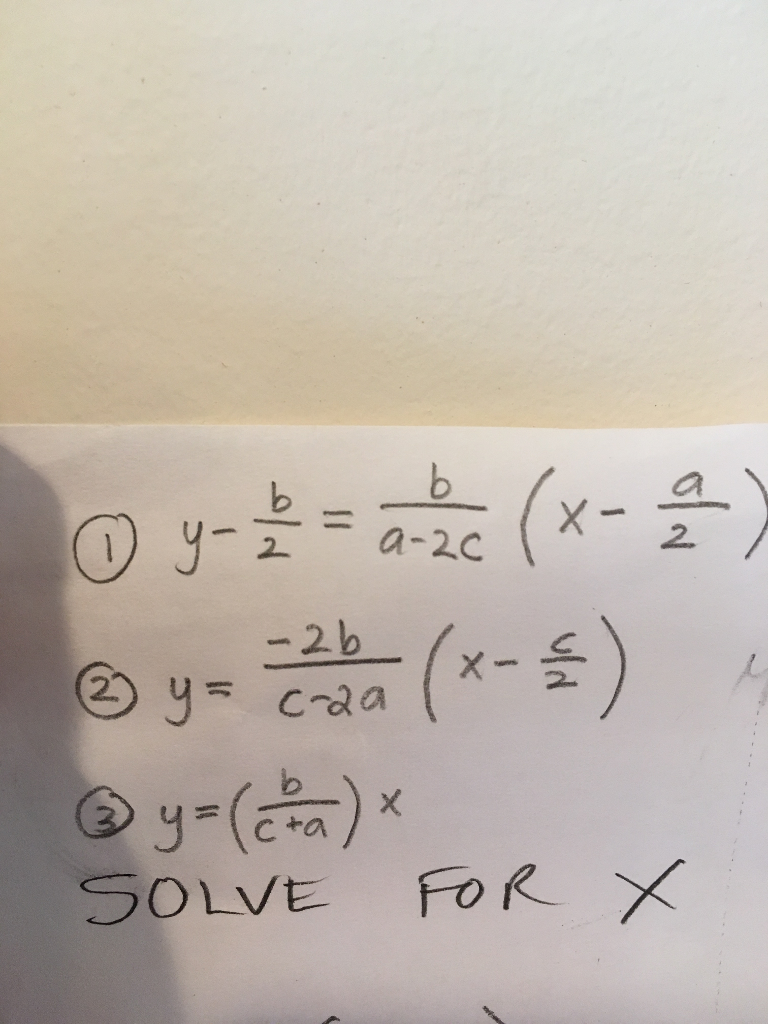 ① y - b/2 = b/(a-2c) (x - a/2)
② y = -2b/(c-2a) (x - c/2)
③ y = (b/(c+a)) x
SOLVE FOR X